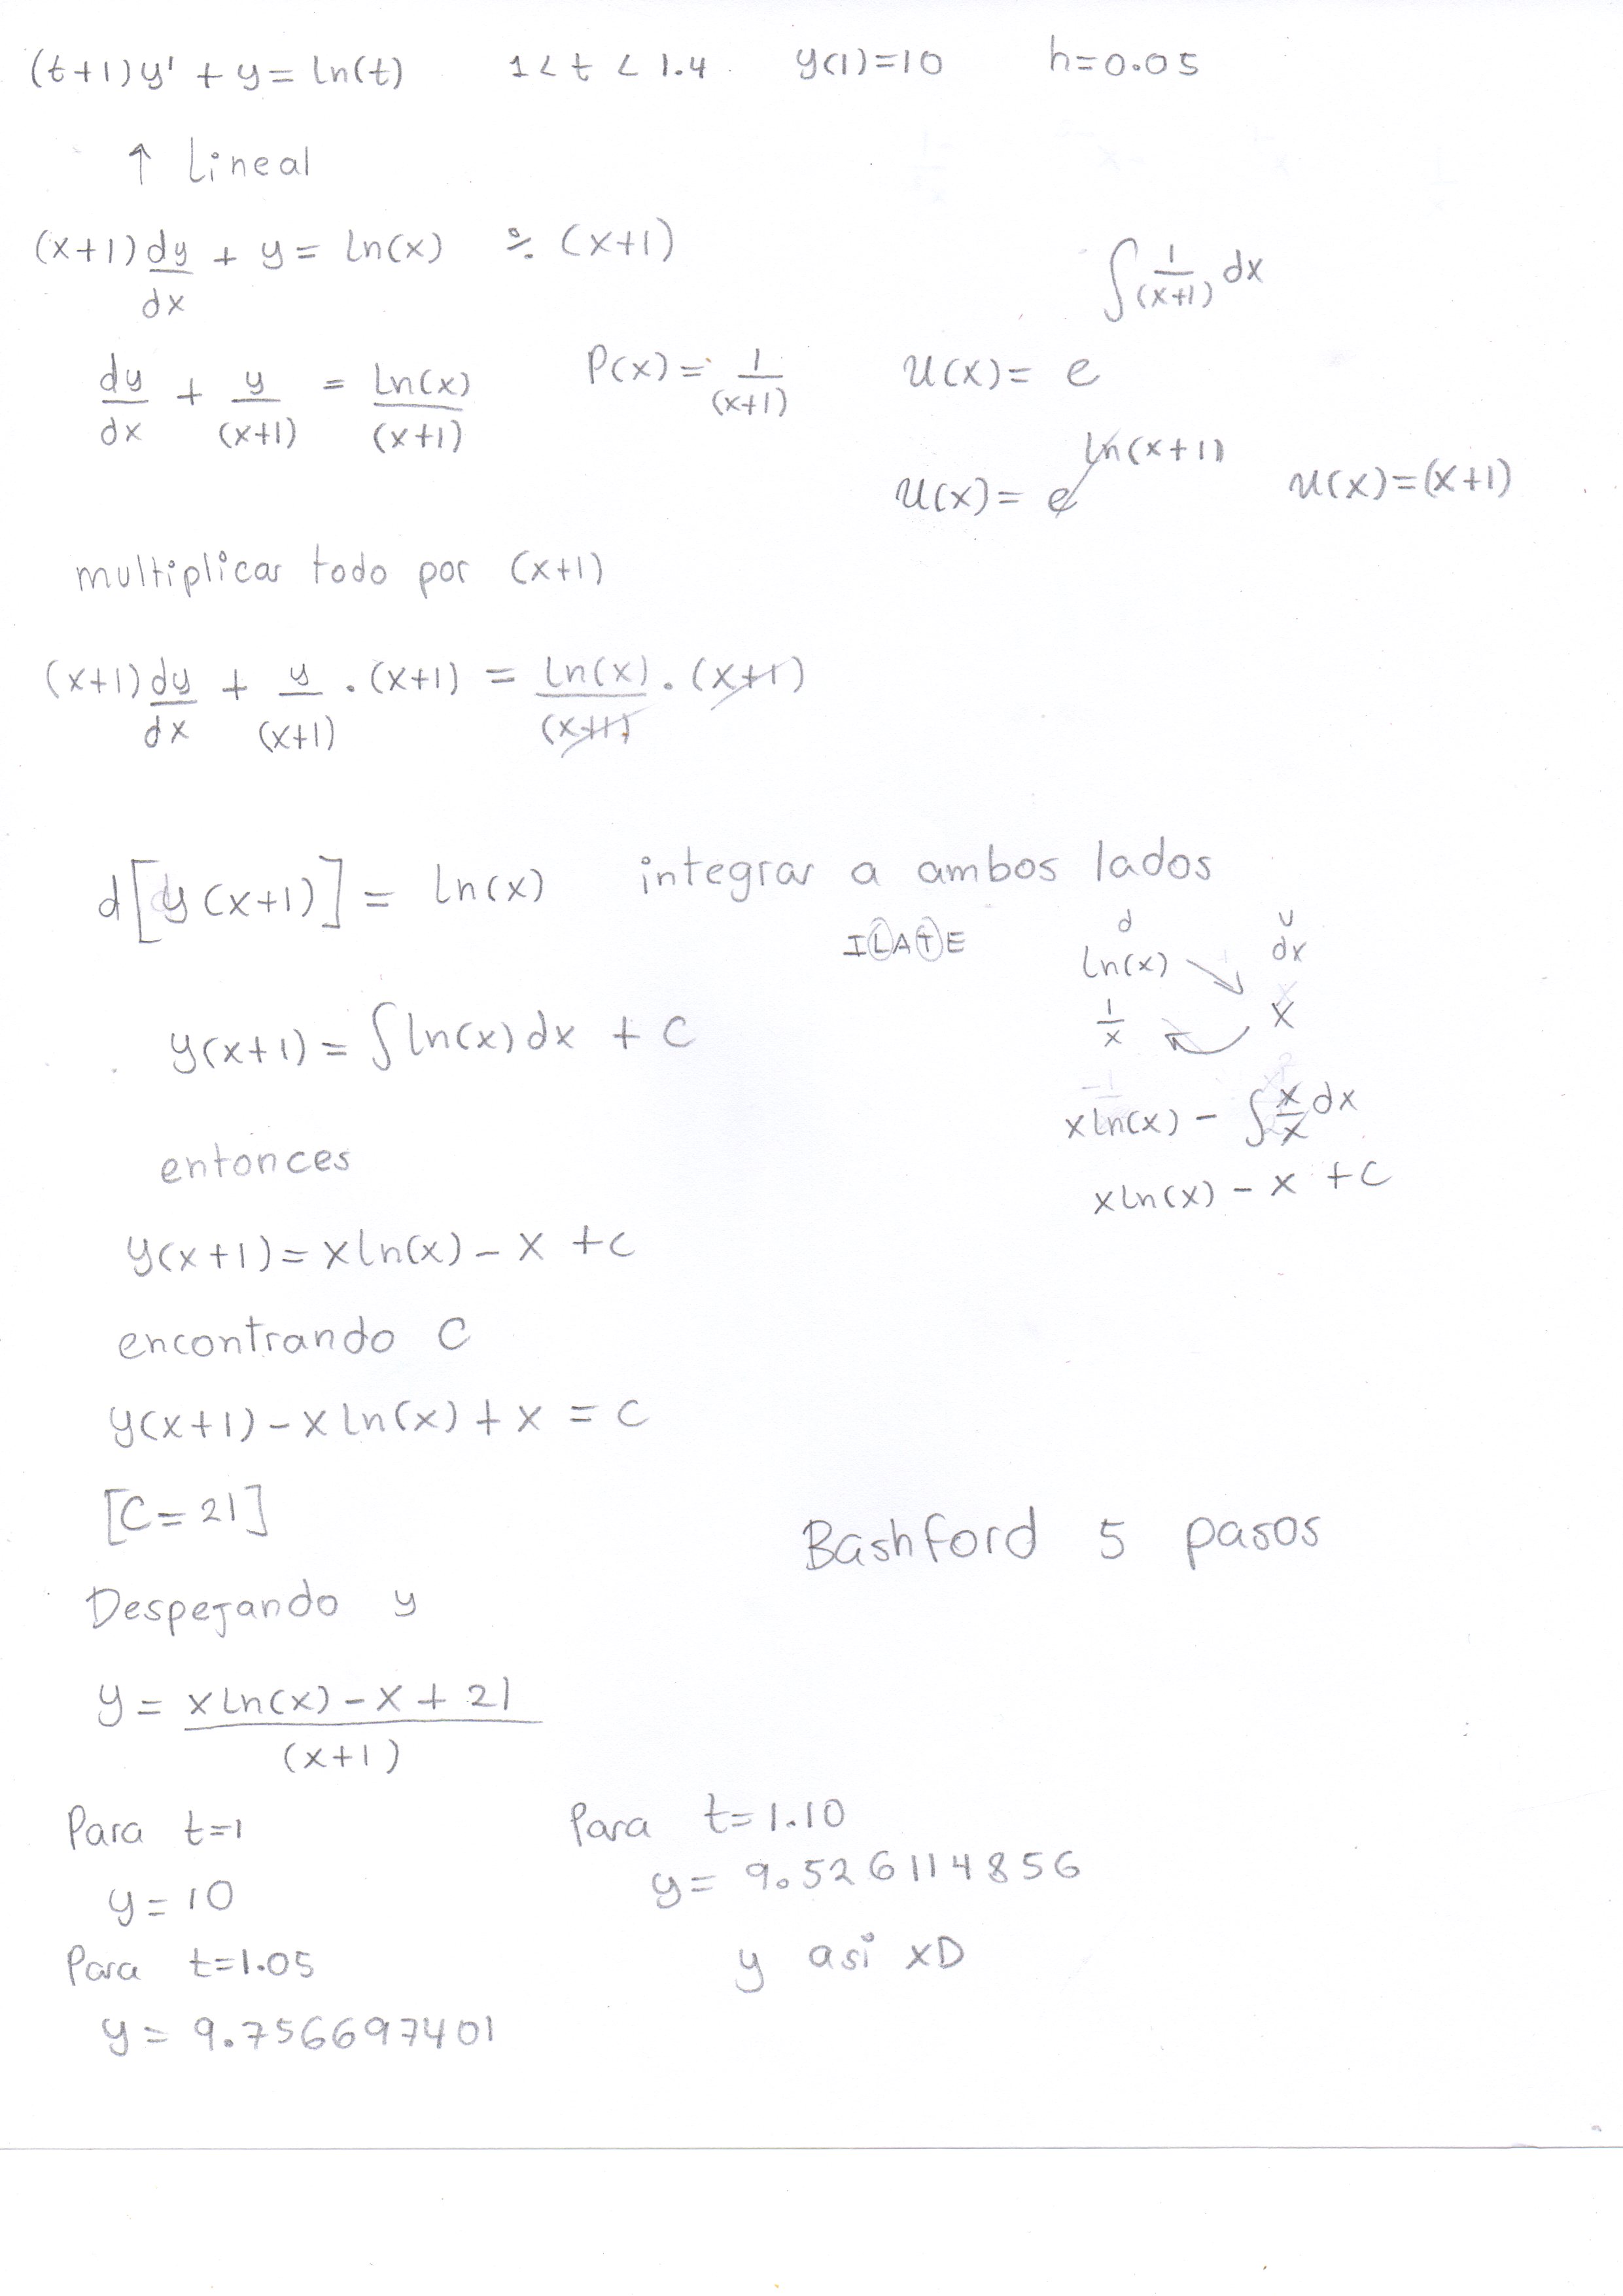 (t+1)y' + y = ln(t)   1 < t < 1.4   y(1)=10   h=0.05
↑ Lineal
(x+1) dy/dx + y = ln(x)   ÷ (x+1)
dy/dx + y/(x+1) = ln(x)/(x+1)   P(x) = 1/(x+1)   u(x) = e^∫ 1/(x+1) dx
u(x) = e^ln(x+1)   u(x) = (x+1)
multiplicar todo por (x+1)
(x+1) dy/dx + y/(x+1) . (x+1) = ln(x)/(x+1) . (x+1)
d[y(x+1)] = ln(x)   integrar a ambos lados
ILATE
d   v
ln(x)   dx
1/x   x
y(x+1) = ∫ ln(x) dx + C
x ln(x) - ∫ x/x dx
x ln(x) - x + C
entonces
y(x+1) = x ln(x) - x + c
encontrando C
y(x+1) - x ln(x) + x = C
[C = 21]
Bashford 5 pasos
Despejando y
y = x ln(x) - x + 21 / (x+1)
Para t=1
y = 10
Para t=1.05
y = 9.756697401
Para t=1.10
y = 9.526114856
y asi xD